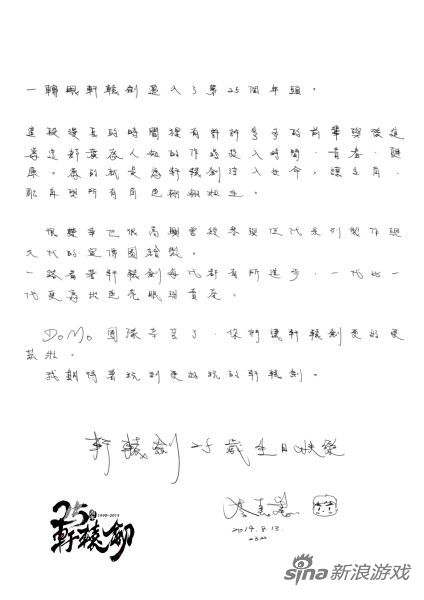 一轉眼軒轅劍邁入了第25個年頭。
這段漫長的時間裡有許許多多的前輩與後進
為這部 人 的作品投入時間、青春、健
康。為的就是為軒轅劍注入生命,讓主角、
配角與所有角色栩栩如生。
很榮幸也很高興曾經參與 代系列製作跟
代的宣傳圖繪製。
一路看著軒轅劍每代都有所進步,一代比一
代更為出色亮眼
DOMO 團隊辛苦了,你們讓軒轅劍更好更
我期待著玩到更好玩的軒轅劍。
軒轅劍25歲生日快樂
2014.8.13.
25 1990-2015
軒轅劍
sina新浪游戏